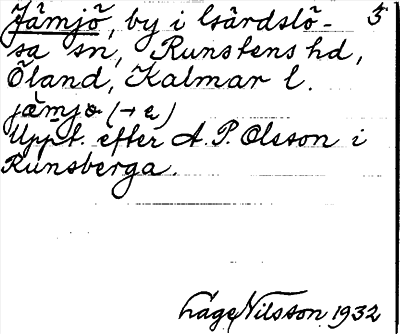 Jämjö, by i Gärdslö- 5
sa sn, Runstens hd,
Öland, Kalmar l.
jæmjo (→ e)
Uppt. efter A. P. Olsson i
Runsberga.
Låge Nilsson 1932